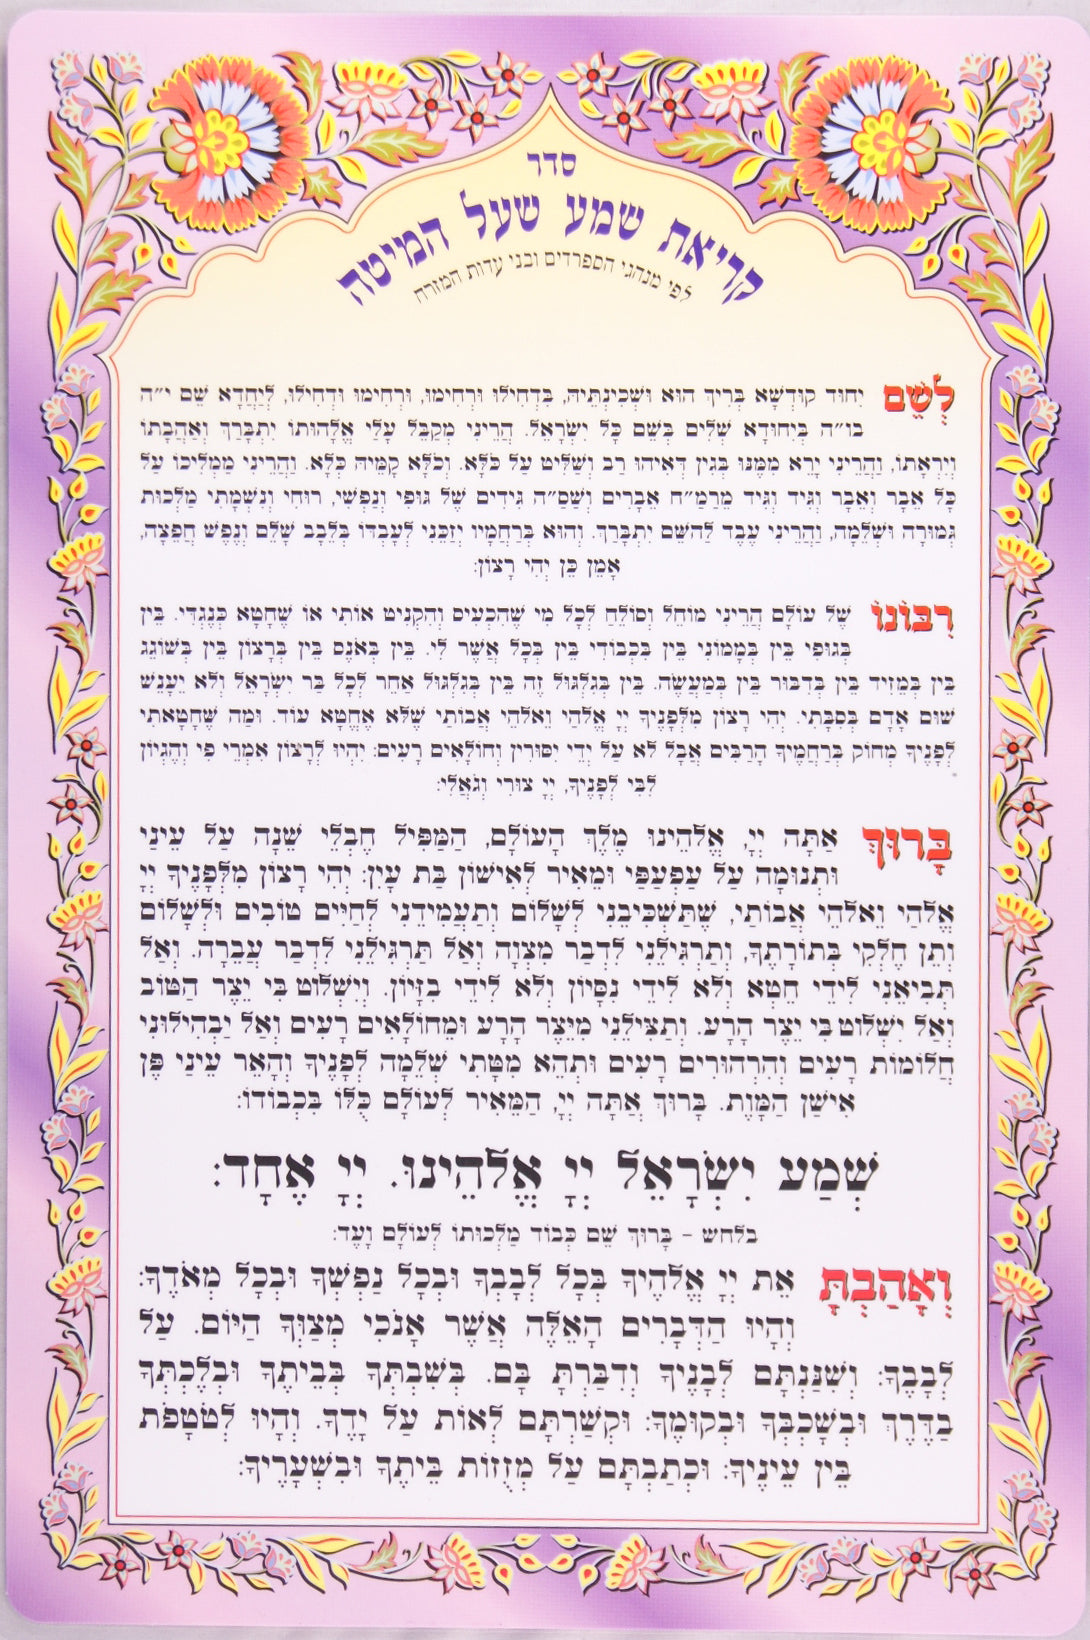 סדר
קריאת שמע שעל המיטה
לפי מנהגי הספרדים ובני עדות המזרח
לְשֵׁם יִחוּד קוּדְשָׁא בְּרִיךְ הוּא וּשְׁכִינְתֵּיהּ, בִּדְחִילוּ וּרְחִימוּ, וּרְחִימוּ וּדְחִילוּ, לְיַחֲדָא שֵׁם י״ה
בו״ה בְּיִחוּדָא שְׁלִים בְּשֵׁם כָּל יִשְׂרָאֵל. הֲרֵינִי מְקַבֵּל עָלַי אֱלָהוּתוֹ יִתְבָּרַךְ וְאַהֲבָתוֹ
וְיִרְאָתוֹ, וַהֲרֵינִי יָרֵא מִמֶּנּוּ בְּגִין דְּאִיהוּ רַב וְשַׁלִּיט עַל כֹּלָּא. וְכֹלָּא קַמֵּיהּ כְּלָא. וַהֲרֵינִי מַמְלִיכוֹ עַל
כָּל אֵבָר וְאֵבָר וְגִיד וְגִיד מֵרמַ״ח אֵבָרִים וּשַׁסַ״ה גִּידִים שֶׁל גּוּפִי וְנַפְשִׁי, רוּחִי וְנִשְׁמָתִי מַלְכוּת
גְּמוּרָה וּשְׁלֵמָה, וַהֲרֵינִי עֶבֶד לְהַשֵּׁם יִתְבָּרַךְ. וְהוּא בְּרַחֲמָיו יְזַכֵּנִי לְעָבְדוֹ בְּלֵבָב שָׁלֵם וְנֶפֶשׁ חֲפֵצָה,
אָמֵן כֵּן יְהִי רָצוֹן:
רִבּוֹנוֹ שֶׁל עוֹלָם הֲרֵינִי מוֹחֵל וְסוֹלֵחַ לְכָל מִי שֶׁהִכְעִים וְהִקְנִיט אוֹתִי אוֹ שֶׁחָטָא כְּנֶגְדִּי. בֵּין
בְּגוּפִי בֵּין בְּמָמוֹנִי בֵּין בִּכְבוֹדִי בֵּין בְּכָל אֲשֶׁר לִי. בֵּין בְּאֹנֶס בֵּין בְּרָצוֹן בֵּין בְּשׁוֹגֵג
בֵּין בְּמֵזִיד בֵּין בְּדִבּוּר בֵּין בְּמַעֲשֶׂה. בֵּין בְּגִלְגּוּל זֶה בֵּין בְּגִלְגּוּל אַחֵר לְכָל בַּר יִשְׂרָאֵל וְלֹא יֵעָנֵשׁ
שׁוּם אָדָם בְּסִבָּתִי. יְהִי רָצוֹן מִלְּפָנֶיךָ יְיָ אֱלֹהַי וֵאלֹהֵי אֲבוֹתַי שֶׁלֹּא אֶחֱטָא עוֹד. וּמַה שֶּׁחָטָאתִי
לְפָנֶיךָ מְחוֹק בְּרַחֲמֶיךָ הָרַבִּים אֲבָל לֹא עַל יְדֵי יִסּוּרִין וְחוֹלָאִים רָעִים: יִהְיוּ לְרָצוֹן אִמְרֵי פִי וְהֶגְיוֹן
לִבִּי לְפָנֶיךָ, יְיָ צוּרִי וְגֹאֲלִי:
בָּרוּךְ אַתָּה יְיָ, אֱלֹהֵינוּ מֶלֶךְ הָעוֹלָם, הַמַּפִּיל חֶבְלֵי שֵׁנָה עַל עֵינַי
וּתְנוּמָה עַל עַפְעַפַּי וּמֵאִיר לְאִישׁוֹן בַּת עָיִן: יְהִי רָצוֹן מִלְּפָנֶיךָ יְיָ
אֱלֹהַי וֵאלֹהֵי אֲבוֹתַי, שֶׁתַּשְׁכִּיבֵנִי לְשָׁלוֹם וְתַעֲמִידֵנִי לְחַיִּים טוֹבִים וּלְשָׁלוֹם
וְתֵן חֶלְקִי בְּתוֹרָתֶךָ, וְתַרְגִּילֵנִי לִדְבַר מִצְוָה וְאַל תַּרְגִּילֵנִי לִדְבַר עֲבֵרָה. וְאַל
תְּבִיאֵנִי לִידֵי חֵטְא וְלֹא לִידֵי נִסָּיוֹן וְלֹא לִידֵי בִזָּיוֹן. וְיִשְׁלוֹט בִּי יֵצֶר הַטּוֹב
וְאַל יִשְׁלוֹט בִּי יֵצֶר הָרָע. וְתַצִּילֵנִי מִיֵּצֶר הָרָע וּמֵחוֹלָאִים רָעִים וְאַל יַבְהִילוּנִי
חֲלוֹמוֹת רָעִים וְהִרְהוּרִים רָעִים וּתְהֵא מִטָּתִי שְׁלֵמָה לְפָנֶיךָ וְהָאֵר עֵינַי פֶּן
אִישַׁן הַמָּוֶת. בָּרוּךְ אַתָּה יְיָ, הַמֵּאִיר לְעוֹלָם כֻּלּוֹ בִּכְבוֹדוֹ:
שְׁמַע יִשְׂרָאֵל יְיָ אֱלֹהֵינוּ. יְיָ אֶחָד:
בלחש - בָּרוּךְ שֵׁם כְּבוֹד מַלְכוּתוֹ לְעוֹלָם וָעֶד:
וְאָהַבְתָּ אֵת יְיָ אֱלֹהֶיךָ בְּכָל לְבָבְךָ וּבְכָל נַפְשְׁךָ וּבְכָל מְאֹדֶךָ:
וְהָיוּ הַדְּבָרִים הָאֵלֶּה אֲשֶׁר אָנֹכִי מְצַוְּךָ הַיּוֹם. עַל
לְבָבֶךָ: וְשִׁנַּנְתָּם לְבָנֶיךָ וְדִבַּרְתָּ בָּם. בְּשִׁבְתְּךָ בְּבֵיתֶךָ וּבְלֶכְתְּךָ
בַדֶּרֶךְ וּבְשָׁכְבְּךָ וּבְקוּמֶךָ: וּקְשַׁרְתָּם לְאוֹת עַל יָדֶךָ. וְהָיוּ לְטֹטָפֹת
בֵּין עֵינֶיךָ: וּכְתַבְתָּם עַל מְזֻזוֹת בֵּיתֶךָ וּבִשְׁעָרֶיךָ: